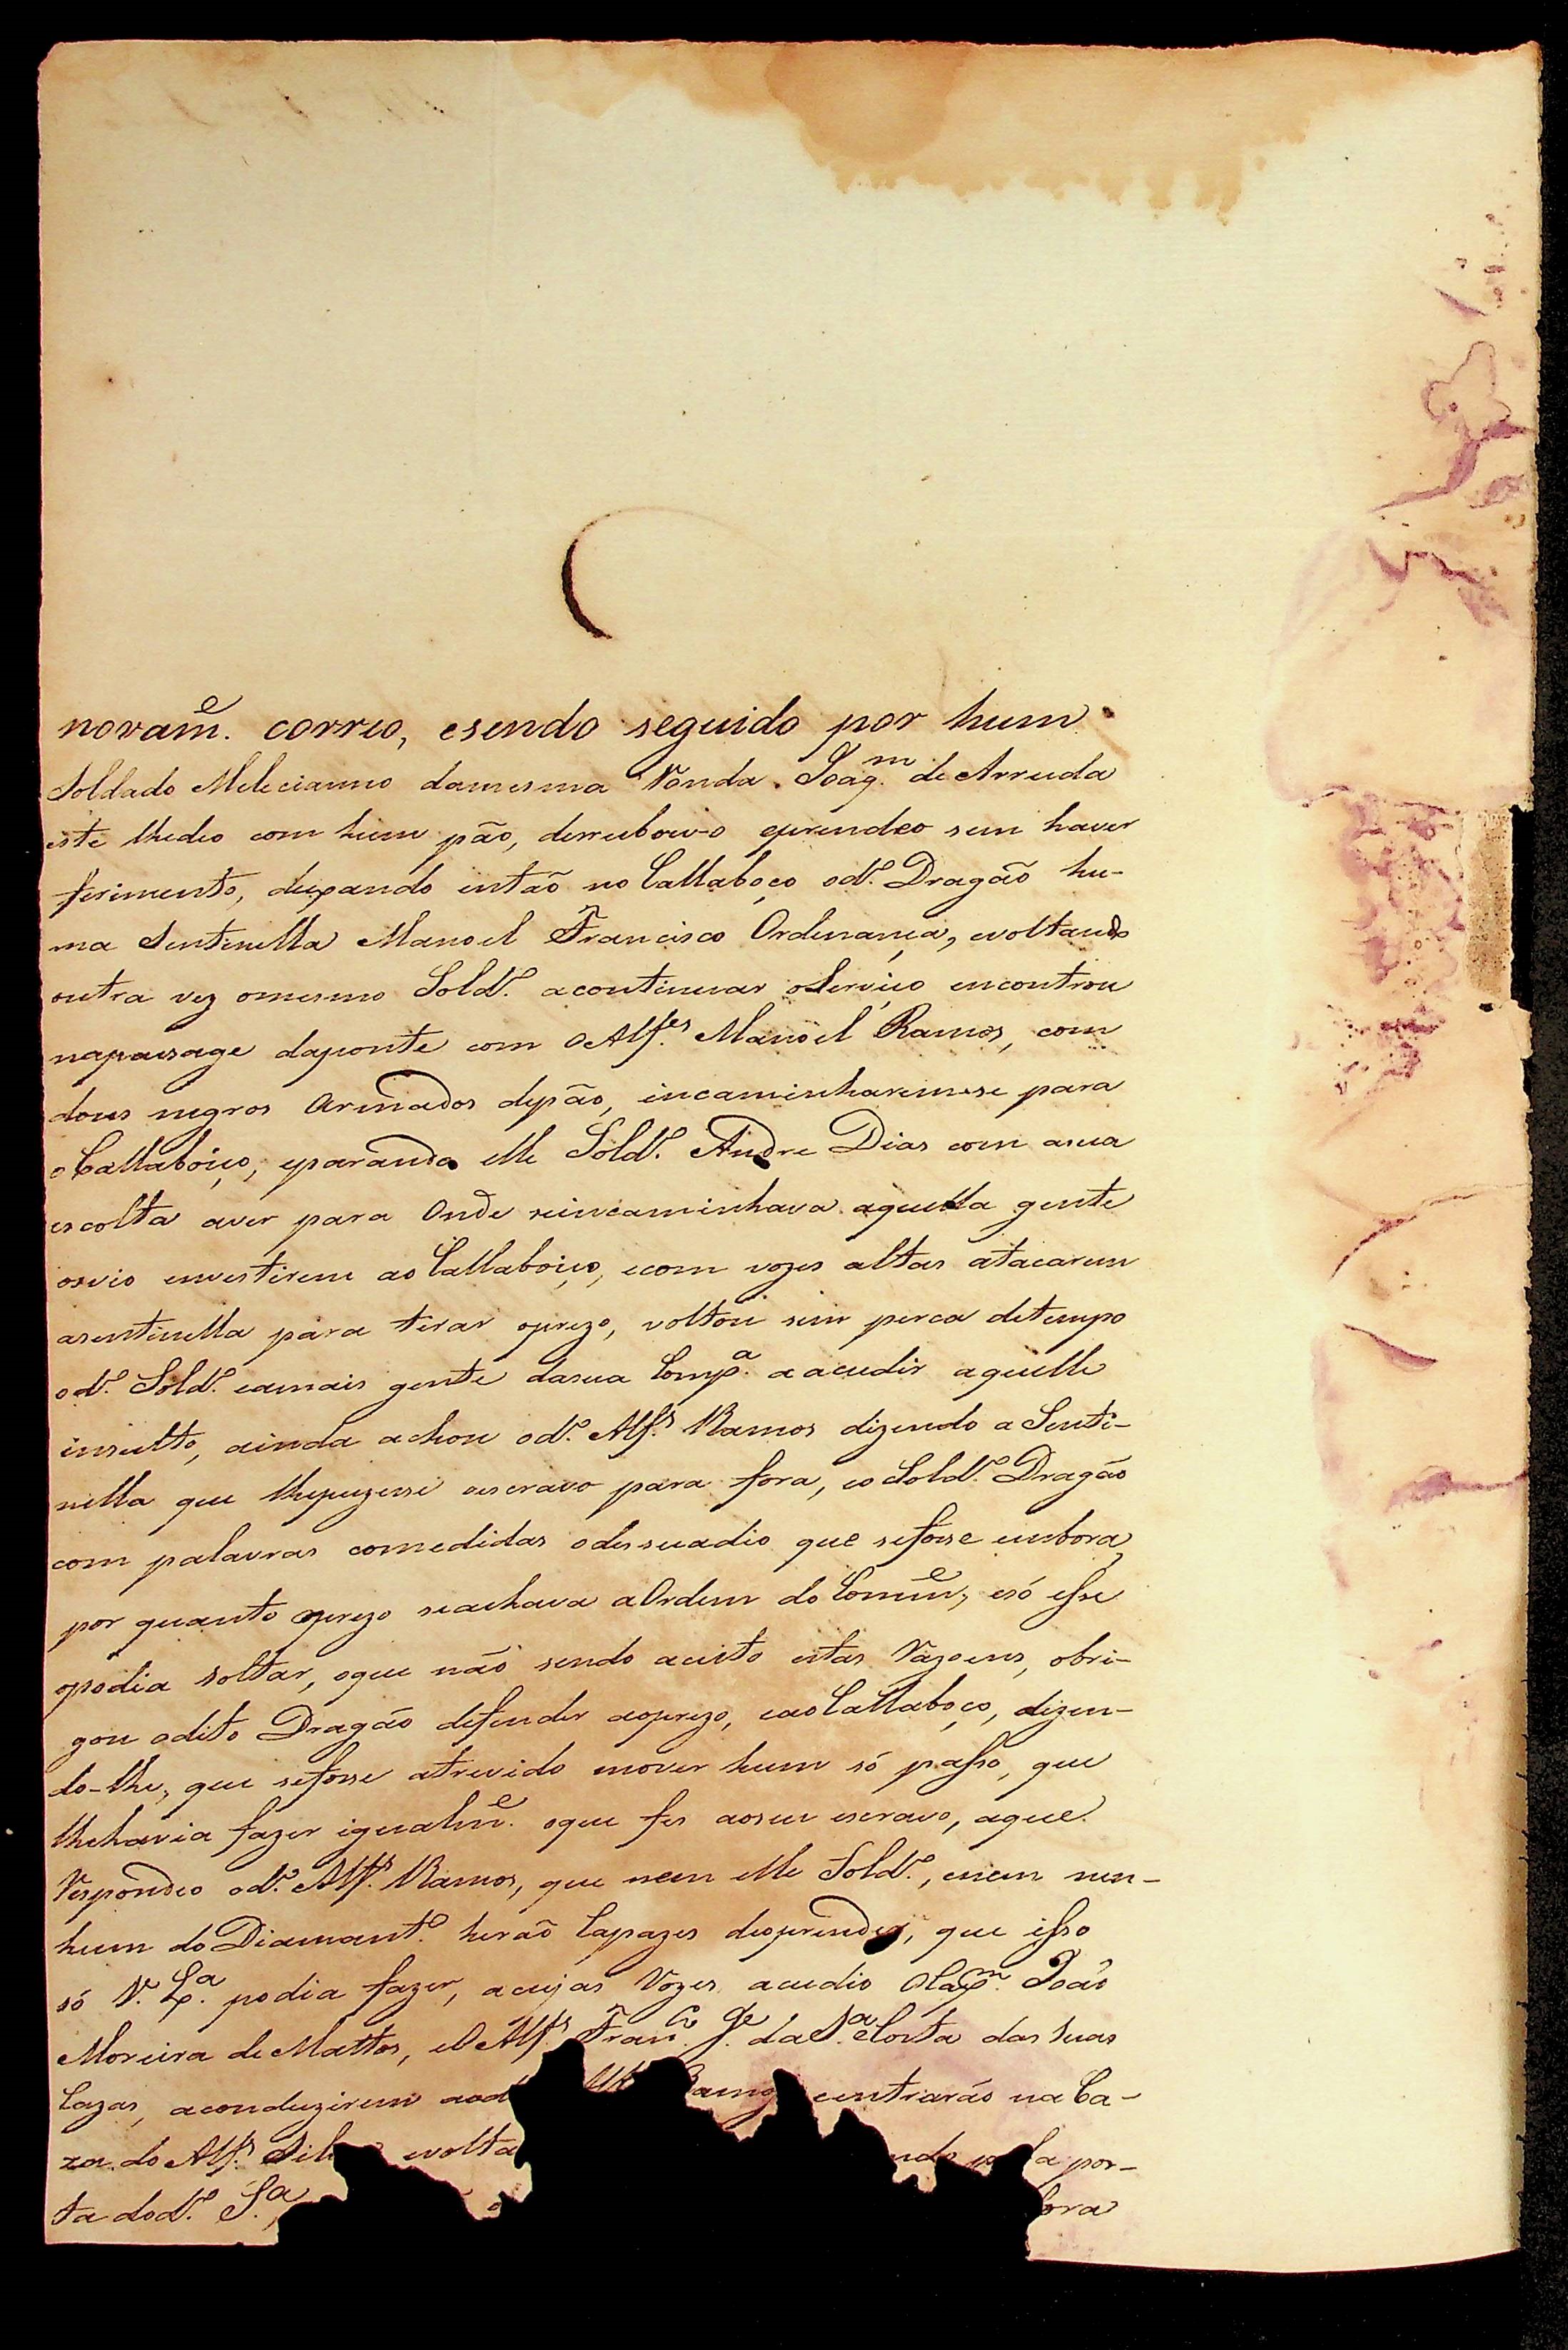 novam.e correo, esendo seguido por hum
Soldado Melecianno damesma Ronda Joaq.m de Arruda
este lhedeo com hum páo, derrubou-o eprendeo sem haver
ferimento, deixando intaõ no Callaboço od.o Dragaõ hu-
ma Sentinella Manoel Francisco Ordenança, evoltando
outra vez omesmo Sold.o acontinuar oServiço encontrou
napassage daponte com oAlf.es Manoel Ramos, com
dous negros Armados depáo, incaminharemse para
oCallaboiço, eparando elle Sold.o Andre Dias com asua
escolta aver para Onde seincaminhava aquella gente
osvio envestirem ao Callaboiço, ecom vozes altas atacarem
asentinella para tirar oprezo, voltou sem perca detempo
od.o Sold.o eamais gente dasua Comp.a aacudir aquelle
insulto, ainda achou od.o Alf.s Ramos dizendo a Senti-
nella que lhepuzesse oescravo para fora, eo Sold.o Dragaõ
com palavras comedidas odissuadio que sefosse embora,
por quanto oprezo seachava aOrdem do Comm.e, esó esse
opodia soltar, oque naõ sendo aceito estas Razoens, obri-
gou odito Dragaõ defender aoprezo, eaoCallaboço, dizen-
do-lhe, que sefosse atrevido mover hum só passo, que
lhehavia fazer igualm.e oque fes aoseu escravo, aque
Respondeo od.o Alf.s Ramos, que nem elle Sold.o, enem nen-
hum do Diamant.o heraõ Capazes deoprender, que isso
só V. S.a podia fazer, acujas Vozes acudio oCap.m Joaõ
Moreira de Mattos, eo Alf.s Fran.co J.e da S.a Costa das suas
Cazas, aconduzirem aod Ramos eentraráo na Ca-
za do Alf.s evolta ndo pela por-
ta dod.o S.a,